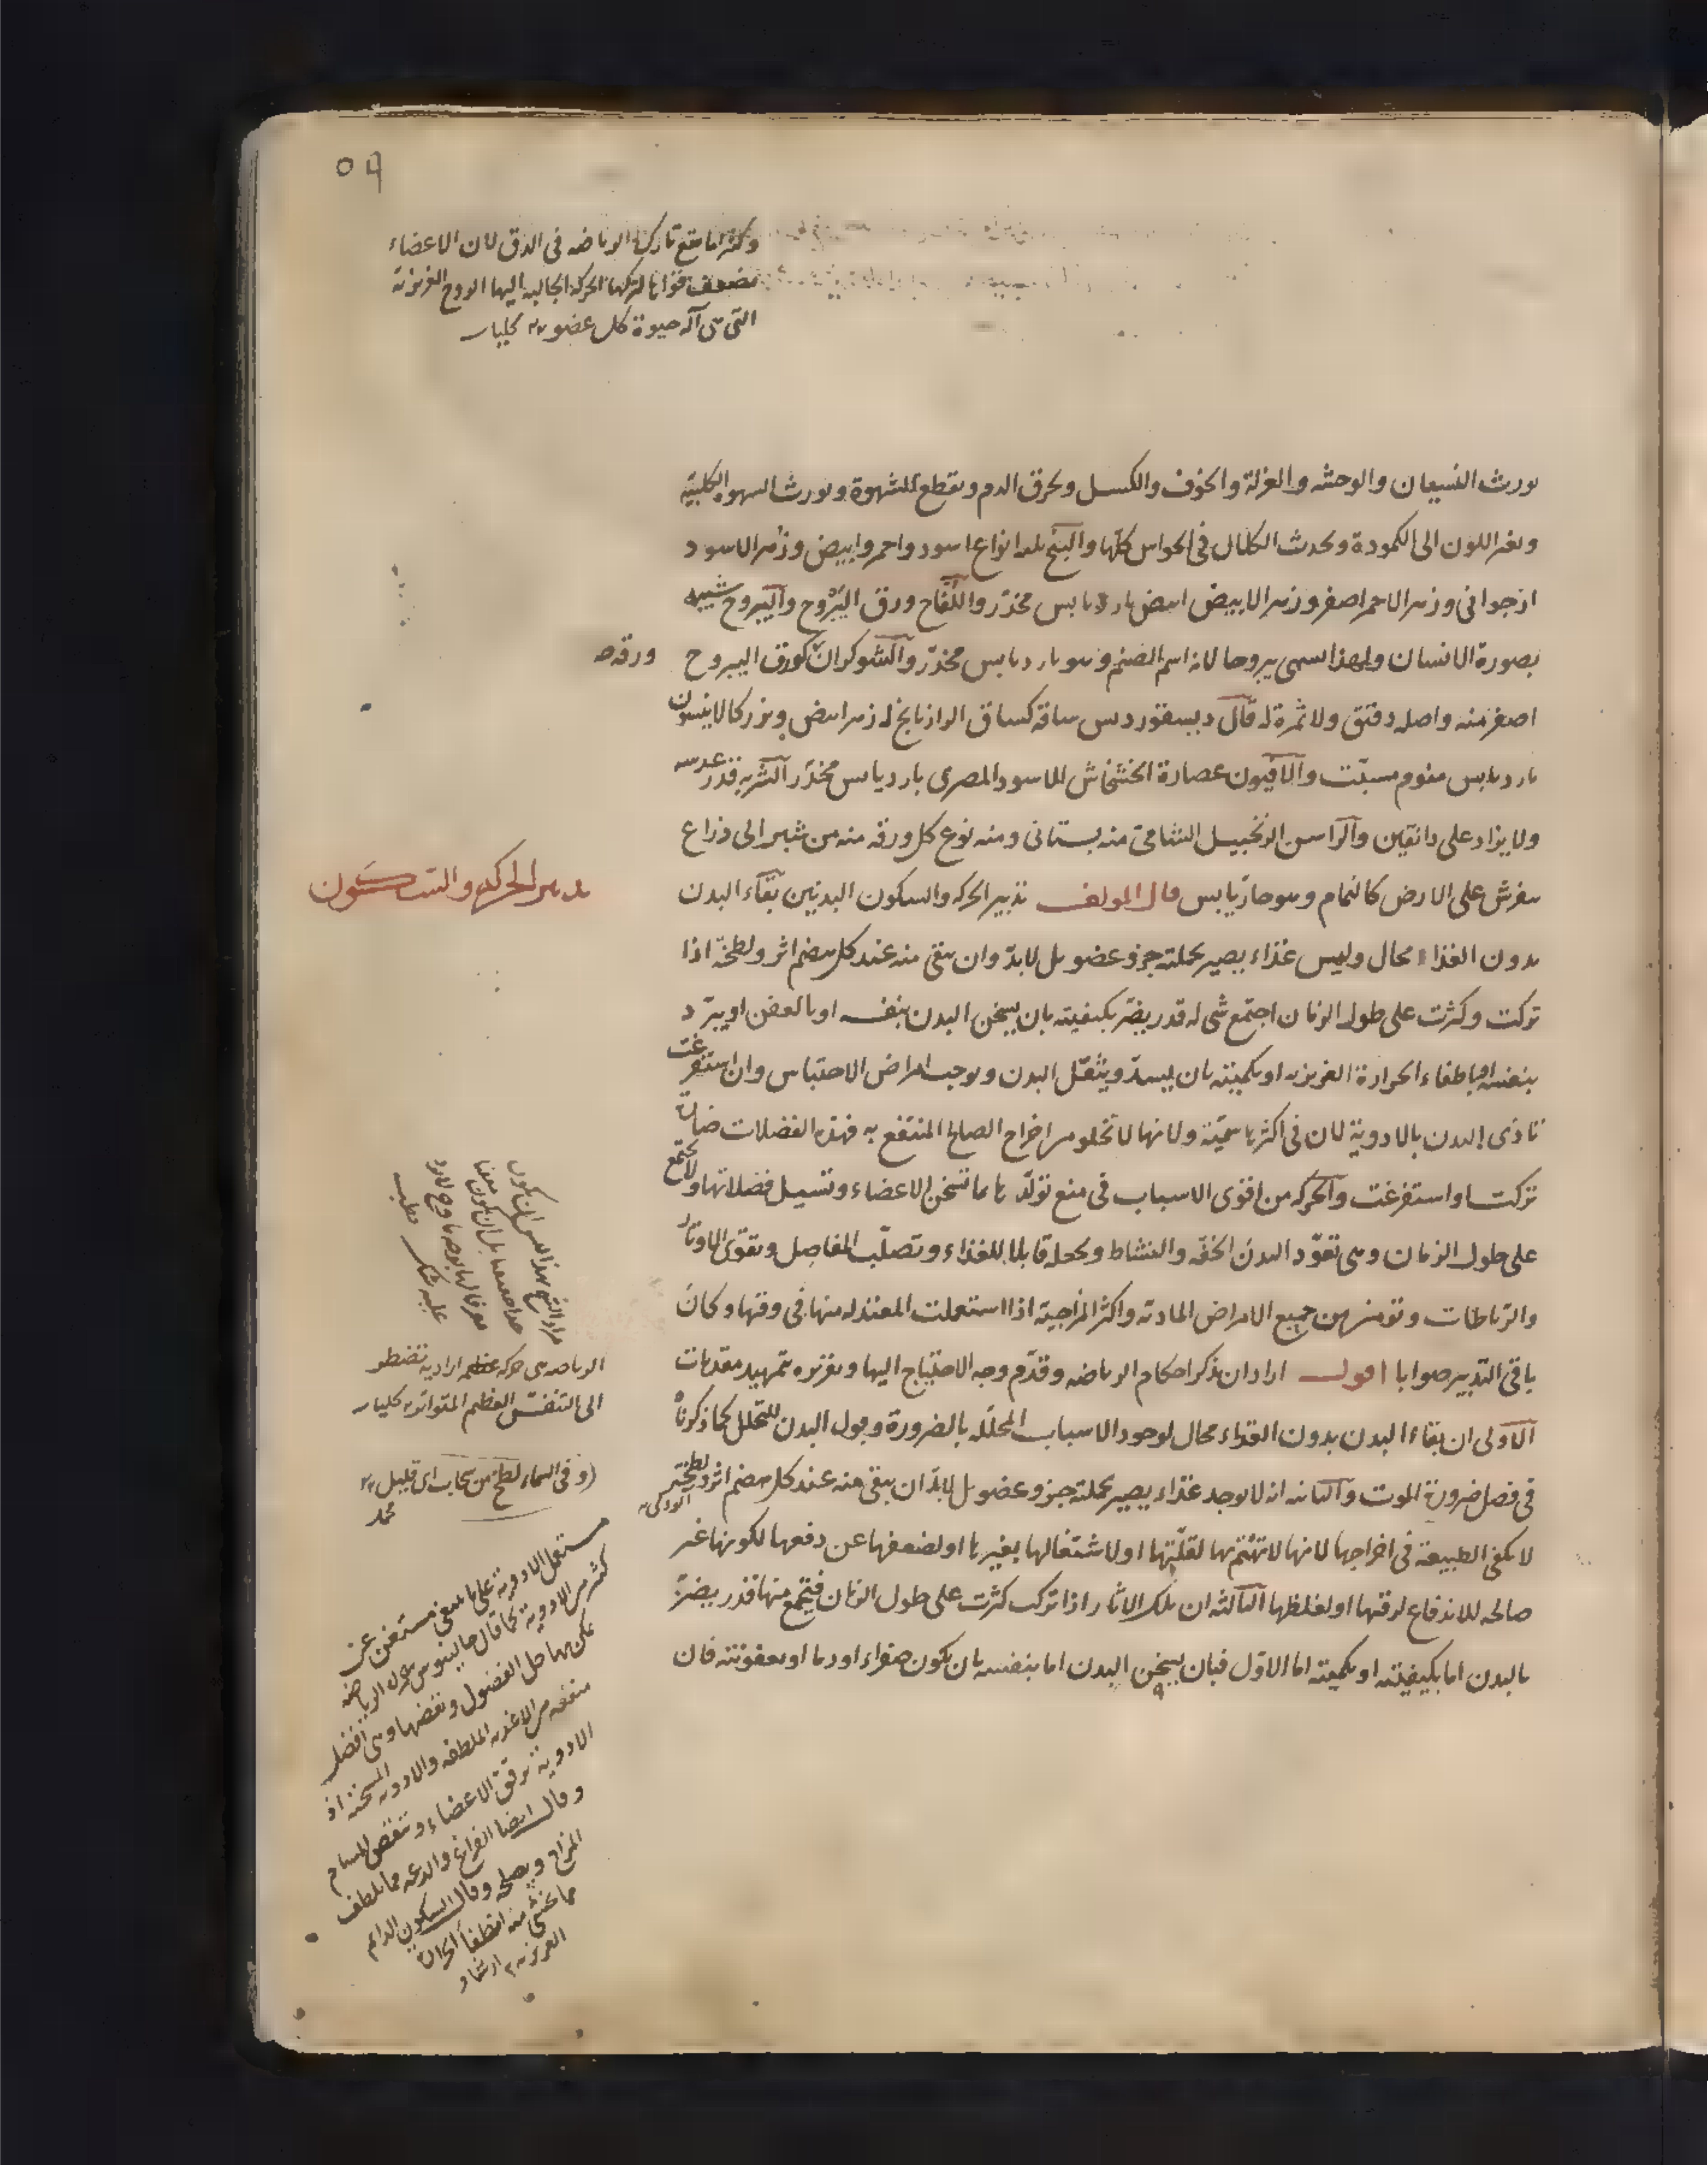 ٥٩
وكثيرا ما يقع تارك الرياضه فى الدق لان الاعضاء
تضعف قواها لتركها الحركه الجالبه اليها الروح الغريزية
التى هى آلة حيوة كل عضو كليات
يورث النسيان والوحشه والعزلة والخوف والكسل ويحرق الدم ويقطع الشهوة ويورث الشهوة الكلبية
ويغير اللون الى الكمودة ويحدث الكلال فى الحواس كلّها والبنج ثلثه انواع اسود واحمر وابيض وزهر الاسود
ارجوانى وزهر الاحمر اصفر وزهر الابيض ابيض بارد يابس مخدّر واللّفّاح ورق اليبروح واليبروح شبيه
بصورة الانسان ولهذا سمى يبروحا لانه اسم الصنم وهو بارد يابس مخدّر والشوكران كورق اليبروح
ورقه
اصغر منه واصله دقيق ولا ثمرة له قال ديسقوردس ساقه كساق الرازيانج له زهر ابيض وبزر كالانيسون
بارد يابس منوم مسبّت والافيون عصارة الخشخاش الاسود المصرى بارد يابس مخدّر الشربه قدر عدسه
ولا يزاد على دانقين والراسن الزنجبيل الشامى منه بستانى ومنه نوع كل ورقه منه من شبر الى ذراع
يفرش على الارض كالنمام وهو حارّ يابس قال المولف تدبير الحركه والسكون البدنيين بقآء البدن
تدبير الحركه والسكون
بدون الغذاء محال وليس غذاء يصير بجملته جزو عضو بل لابدّ وان يبقى منه عند كل هضم اثر ولطخة اذا
تركت وكثرت على طول الزمان اجتمع شى له قدر يضرّ بكيفيته بان يسخن البدن بنفسه او بالعفن او يبرّد
بنفسه او باطفاء الحرارة الغريزيه او بكميته بان يسدّ ويثقل البدن ويوجب امراض الاحتباس وان استفرغت
تاذى البدن بالادوية لان فى اكثرها سمّيّة ولانها لا تخلو من اخراج الصالح المنتفع به فهذه الفضلات ضارة
تركت او استفرغت والحركه من اقوى الاسباب فى منع تولّدها بما تسخن الاعضاء وتسيل فضلاتها ولا تجتمع
على طول الزمان وهى تعوّد البدن الخفّه والنشاط وتجعله قابلا للغذاء وتصلّب المفاصل وتقوى الاوتار
والرباطات وتومن من جميع الامراض المادية واكثر المزاجية اذا استعملت المعتدله منها فى وقتها وكان
باقى التدبير صوابا اقول اراد ان يذكر احكام الرياضه وقدّم وجه الاحتياج اليها وتقريره بتمهيد مقدمات
الاولى ان بقاء البدن بدون الغذاء محال لوجود الاسباب المحلّله بالضرورة وقبول البدن للتحلل كما ذكرناه
فى فصل ضرورة الموت والثانيه انه لا يوجد غذاء يصير بجملته جزو عضو بل لابدّ ان يبقى منه عند كل هضم اثر ولطخة
لا تكفى الطبيعة فى اخراجها لانها لا تهتم بها لقلّتها او لاشتغالها بغيرها او لضعفها عن دفعها لكونها غير
صالحه للاندفاع لرقتها او لغلظها الثالثه ان تلك الاثار اذا تركت كثرت على طول الزمان فيجتمع منها قدر يضرّ
بالبدن اما بكيفيته او بكميته اما الاوّل فبان يسخن البدن اما بنفسه بان يكون صفراء او دما او بعفونته فان
الرياضه هى حركه عظيمه اراديه تضطر
الى التنفس العظيم المتواتر كليات
(وفى السماء لطخ من سحاب اى قليل
محمد
مستعمل الادوية على ما ينبغى مستغن عن
كثير من الادوية كما قال جالينوس حركه الرياضه
يمكن بها حل الفضول ونفضها وهى افضل
منفعه من الاغذيه الملطفه والادويه المسخنه اذ
الادوية ترقق الاعضاء وتنقص المسام
وقال ايضا الفراغ والدعه مما يلطف
المزاج ويصلحه وقال السكون الدائم
مما يخشى منه انطفا الحرارة
الغريزيه ارشاد